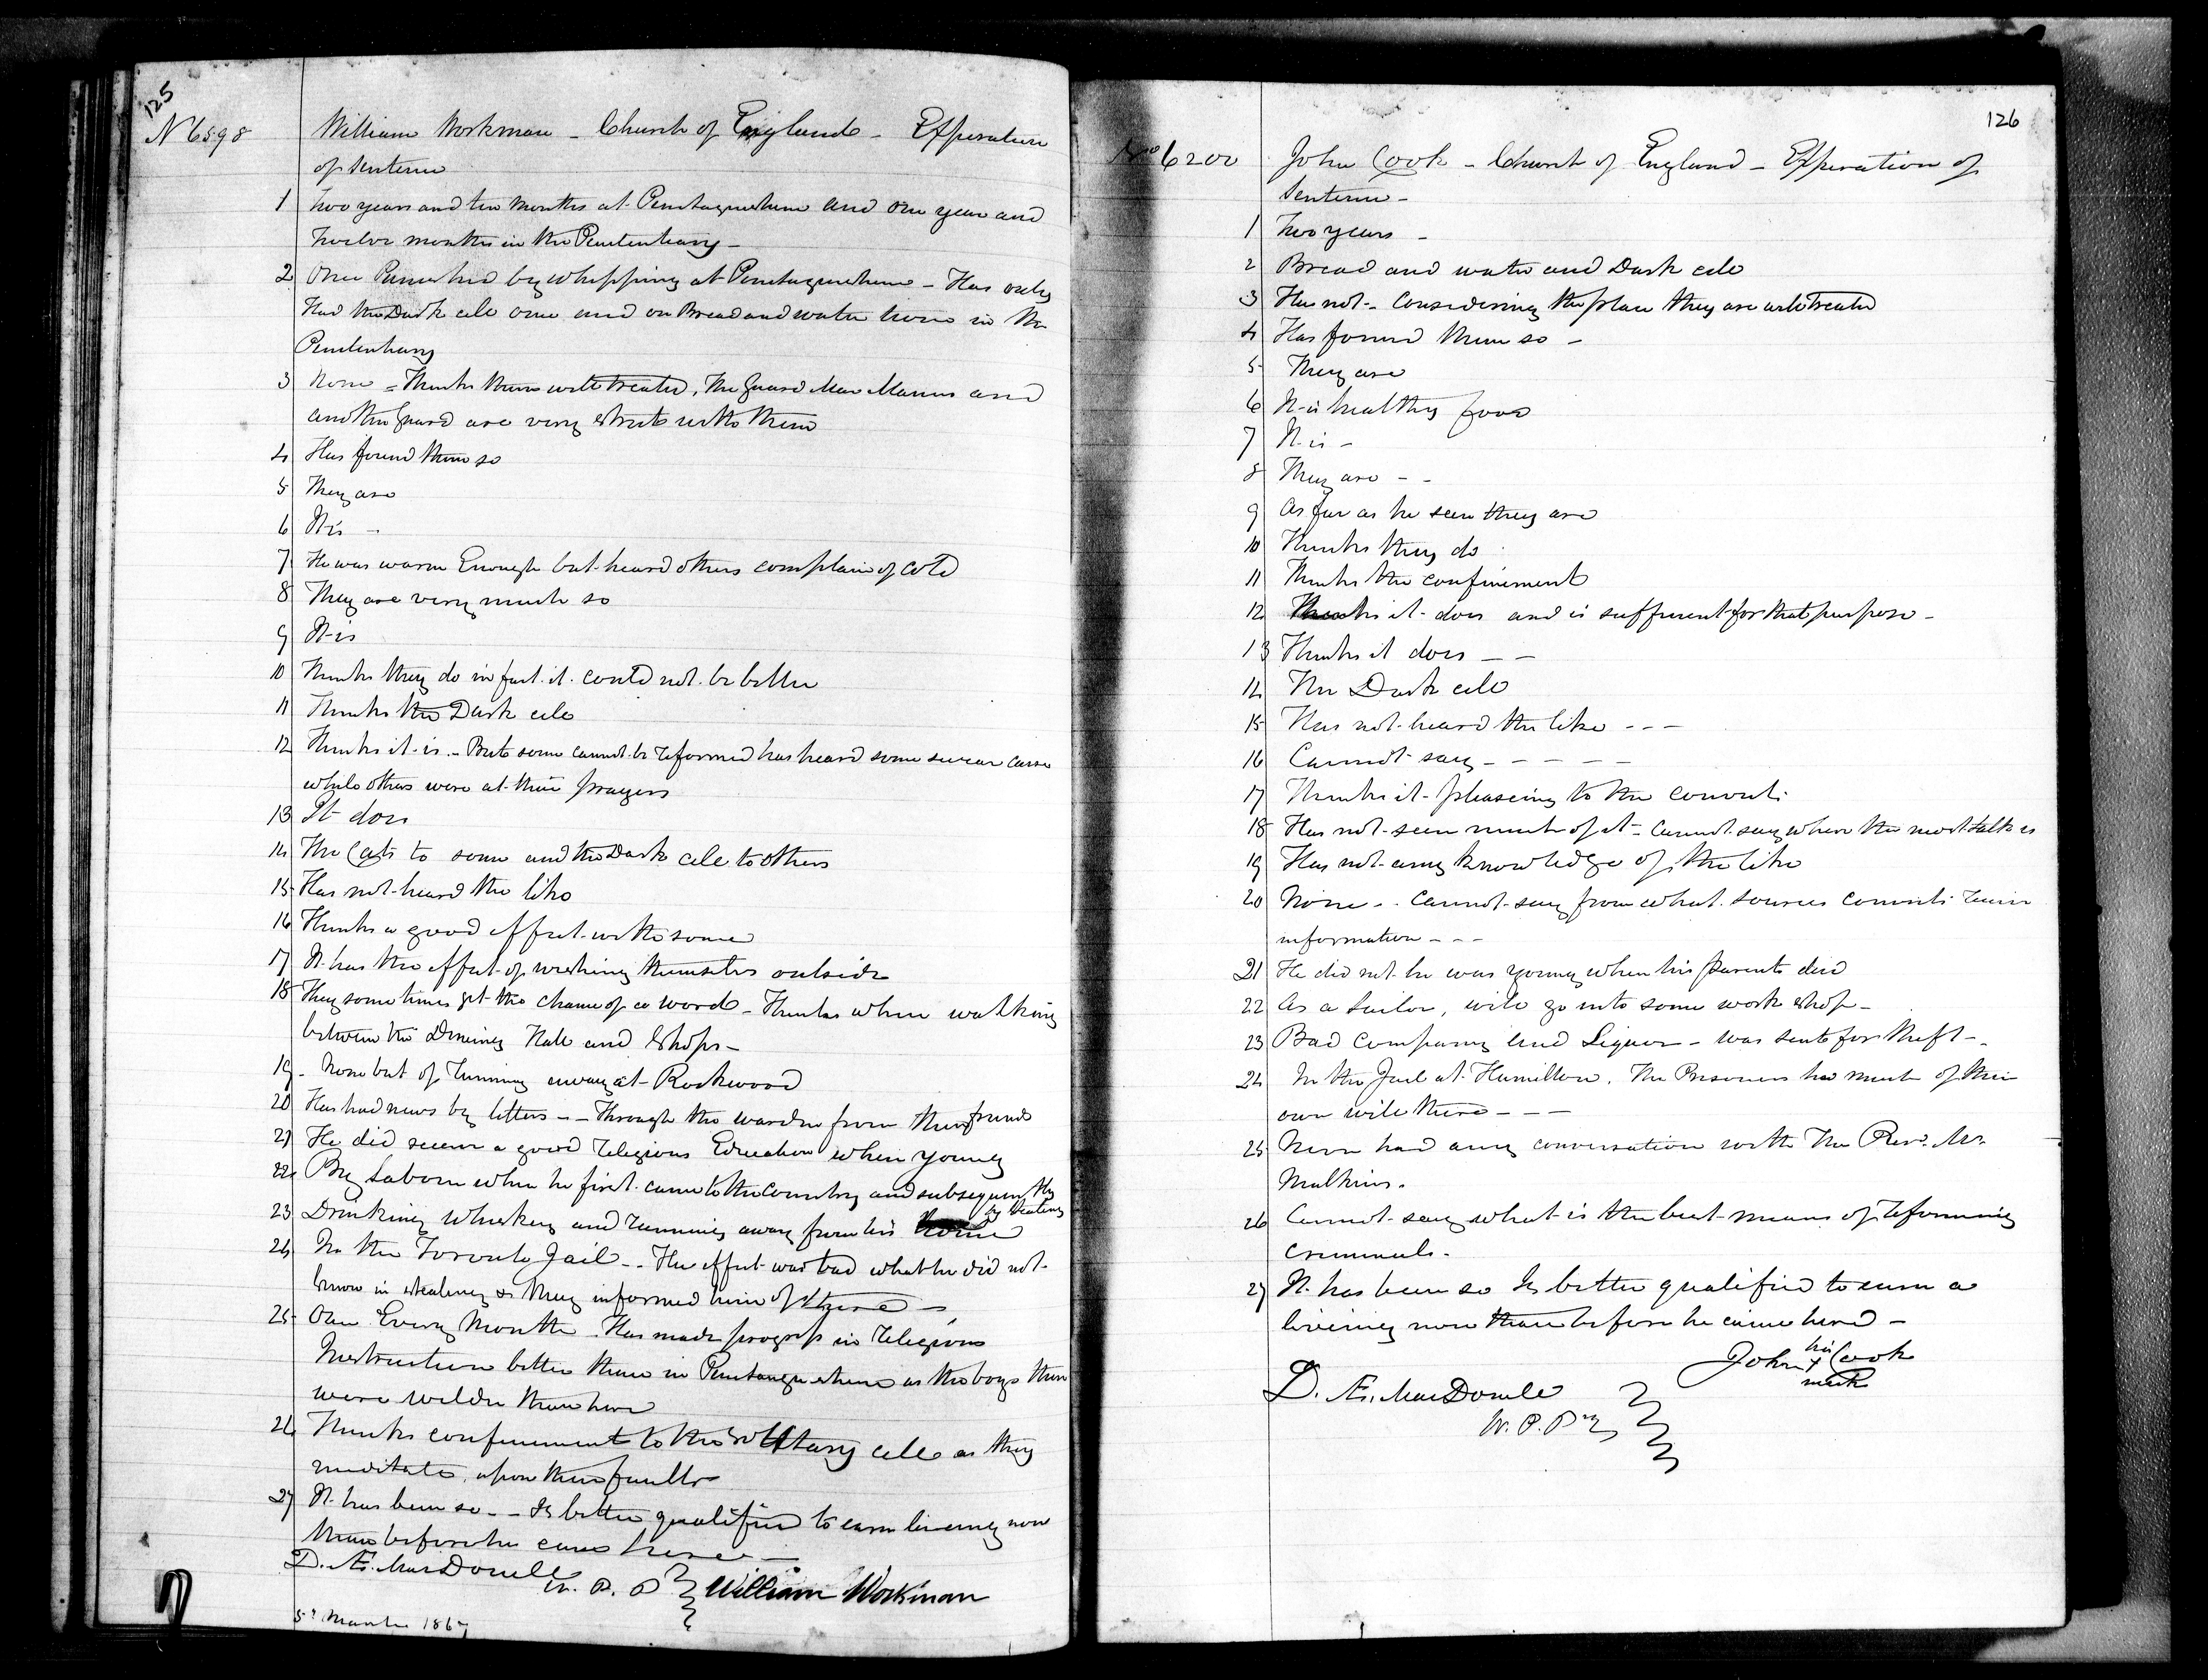 125
No 6598 William Workman - Church of England - Expiration
of Sentence
1 Two years and ten months at Penetanguishene and one year and
Twelve months in the Penitentiary -
2 Once Punished by whipping at Penetanguishene - Has only
Had the Dark cell once and on Bread and water twice in the
Penitentiary
3 None - Thinks them well treated, The Guard Mac Manus and
another Guard are very strict with them
4 Has found them so
5 They are
6 It is -
7 He was warm Enough but heard others complain of cold
8 They are very much so
9 It is
10 Thinks they do in fact it could not be better
11 Thinks the Dark cell
12 Thinks it is - But some cannot be reformed has heard some swear curse
while others were at their prayers
13 It does
14 The Cats to some and the Dark cell to others
15 Has not heard the like
16 Thinks a good effect with some
17 It has the effect of wishing themselves outside
18 They sometimes get the chance of a word - Thinks when walking
between the Dining Hall and Shops -
19 - None but of running away at Rockwood
20 Has had news by letters - - Through the warden from their friends
21 He did receive a good religious Education when young
22 By Labour when he first came to the country and subsequently
by stealing
23 Drinking Whiskey and running away from his home
24 In the Toronto Jail - - The effect was bad what he did not
know in stealing &c they informed him of there -
25 Once Every Month. Has made progress in religious
Instruction better than in Penetanguishene as the boys there
were wilder than here
26 Thinks confinement to the solitary cell as they
meditate upon their faults
27 It has been so - - Is better qualified to earn living now
than before he came here -
D. Æ. MacDonell
W. P. P William Workman
5th March 1867
126
No 6200 John Cook - Church of England - Expiration of
Sentence -
1 Two years -
2 Bread and water and Dark cell
3 Has not - Considering the place they are well treated
4 Has found them so -
5 They are
6 It is healthy food
7 It is -
8 They are - -
9 As far as he seen they are
10 Thinks they do
11 Thinks the confinement
12 Thinks it does and is sufficient for that purpose -
13 Thinks it does - -
14 The Dark cell
15 Has not heard the like - - -
16 Cannot say - - - - -
17 Thinks it pleasing to the convict
18 Has not seen much of it - Cannot say where the most talk is
19 Has not any knowledge of the like
20 None - - Cannot say from what sources convicts receive
information - - -
21 He did not he was young when his parents died
22 As a Sailor, will go into some work shop -
23 Bad Company and Liquor - was sent for theft -
24 In the Jail at Hamilton. The Prisoners had much of their
own will there - - -
25 Never had any conversation with The Revd. Mr.
Mulkins.
26 Cannot say what is the best means of reforming
Criminals.
27 It has been so Is better qualified to earn a
living now than before he came here -
John his Cook
x mark
D. Æ. MacDonell
W. P. Py